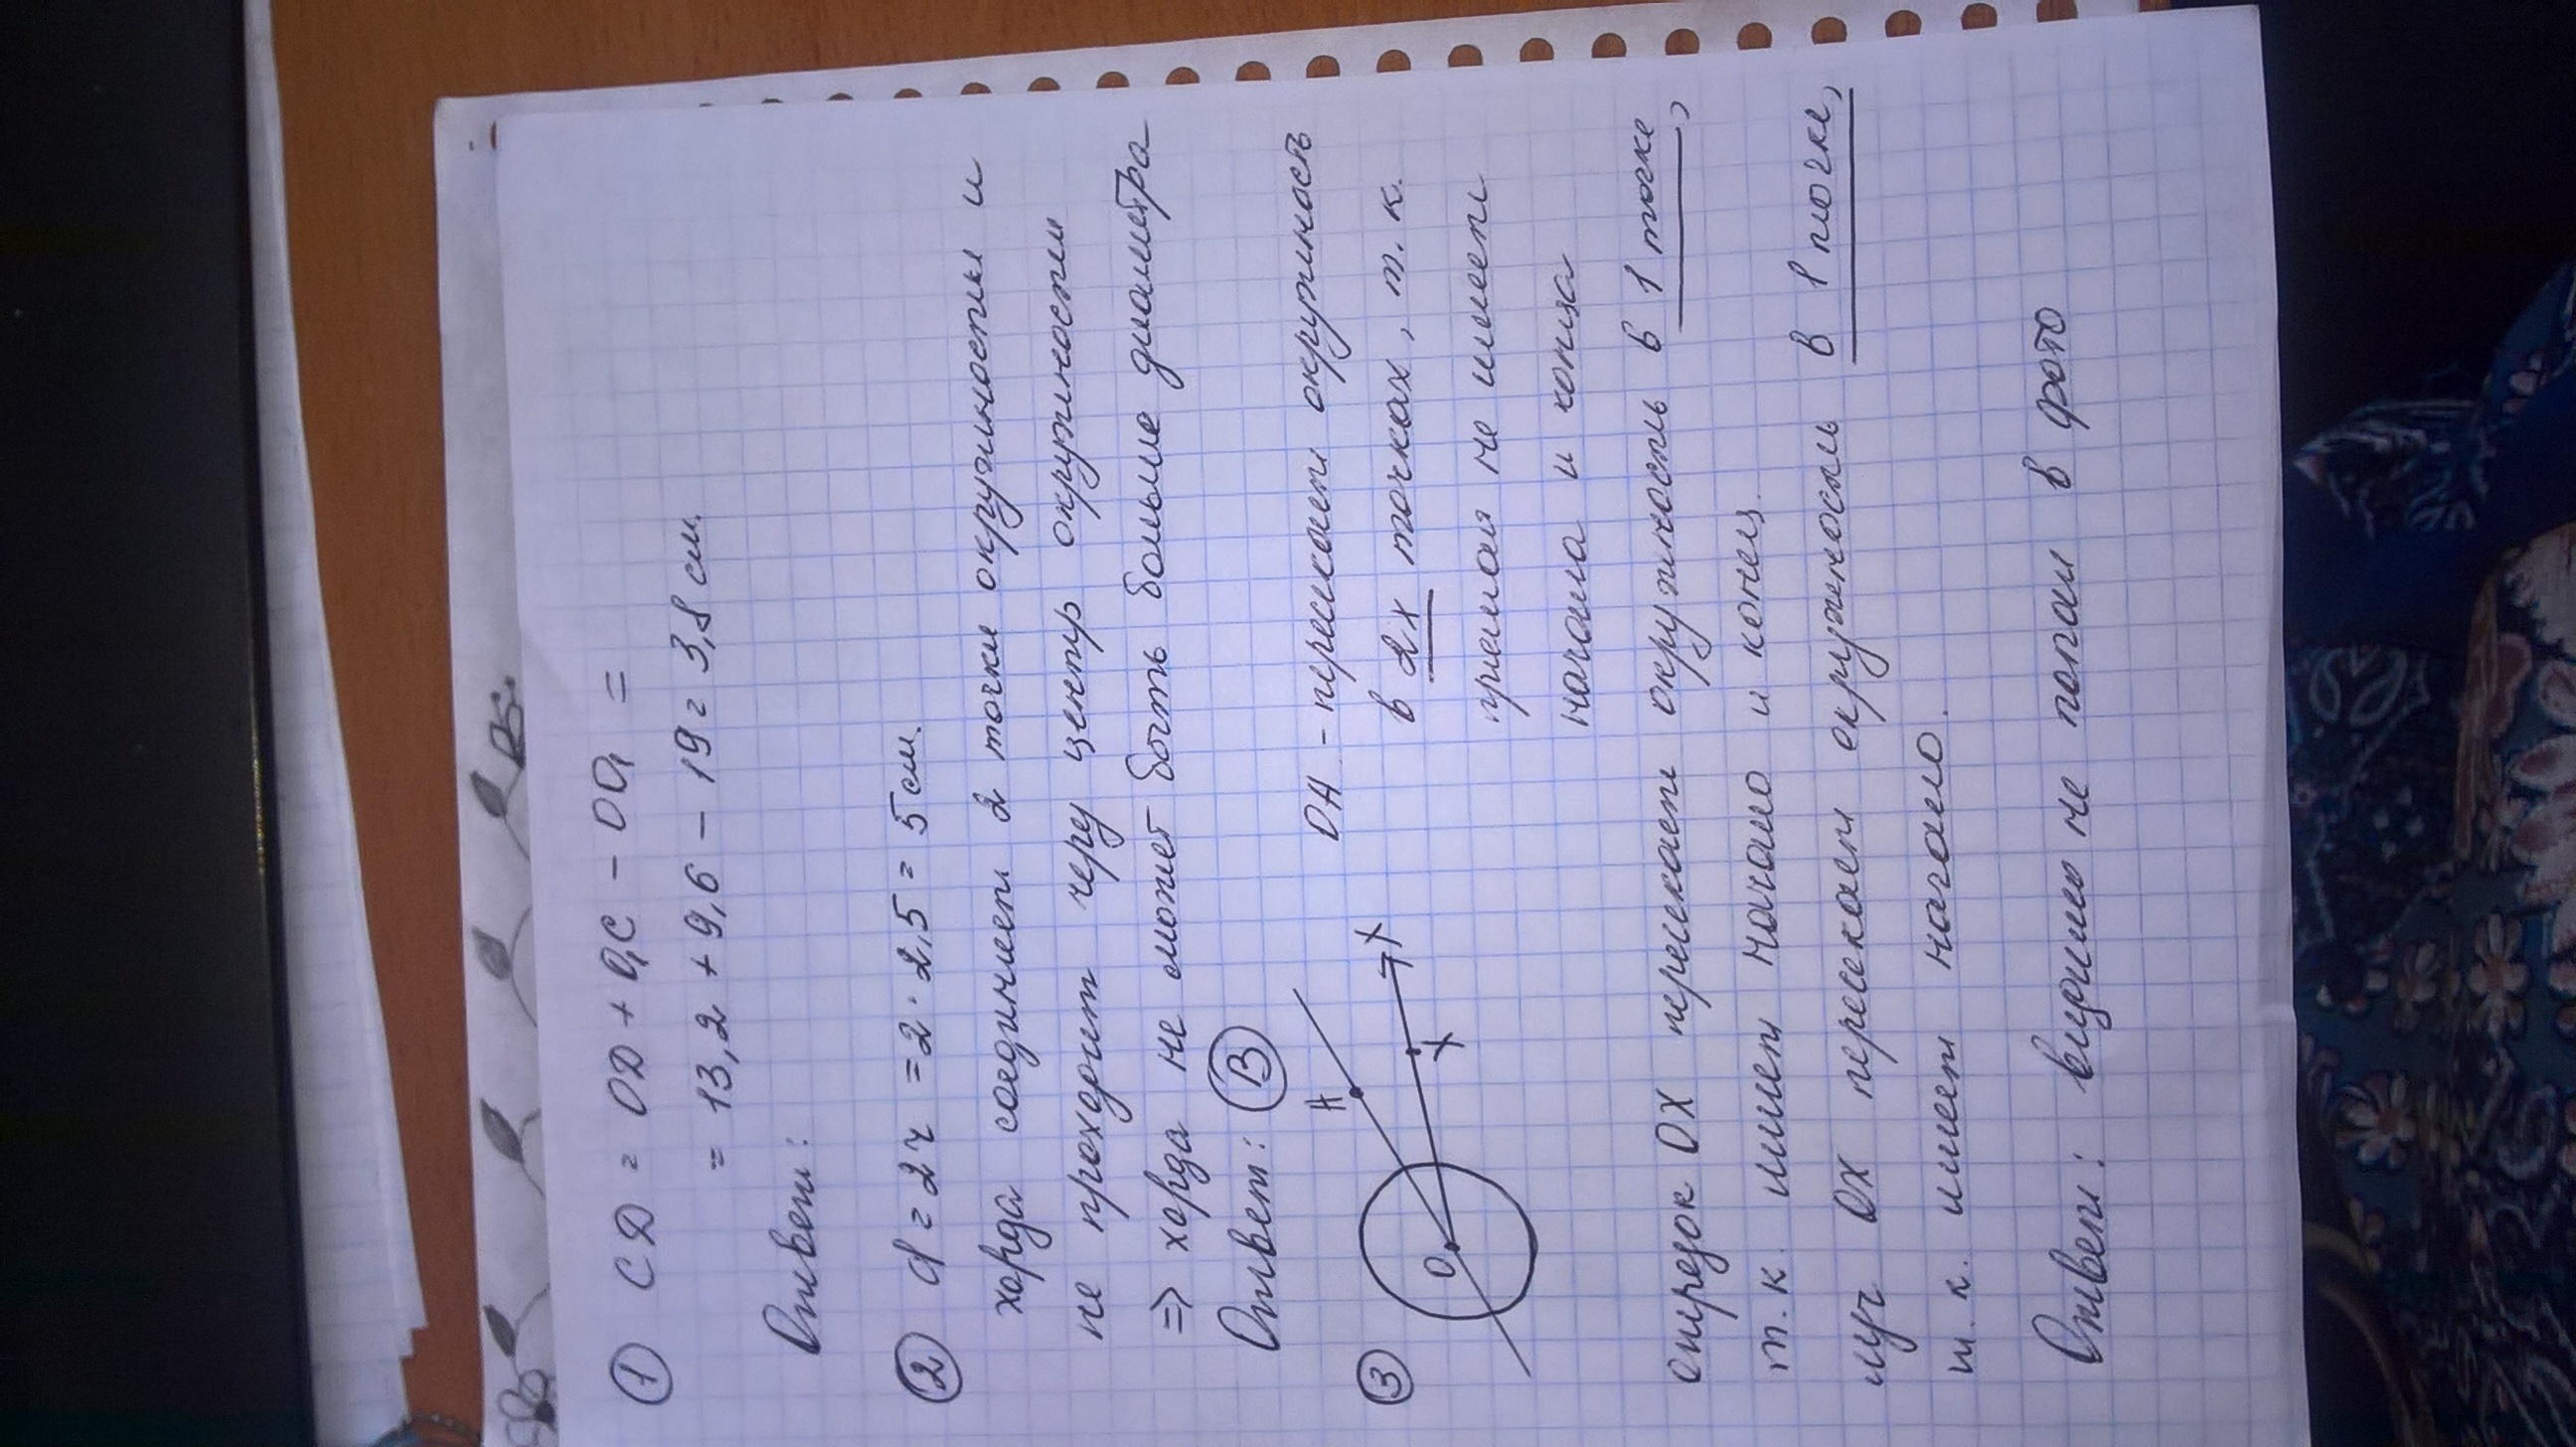 ① CD = OD + O₁C - OO₁ =
= 13,2 + 9,6 - 19 = 3,8 см.
Ответ:
② d = 2r = 2 · 2,5 = 5 см.
хорда соединяет 2 точки окружности и
не проходит через центр окружности
=> хорда не может быть больше диаметра
Ответ: В
③ A X X O
OA - пересекает окружность
в 2х точках, т.к.
прямая не имеет
начала и конца
отрезок OX пересекает окружность в 1 точке,
т.к. имеет начало и конец.
луч OX пересекает окружность в 1 точке,
т.к. имеет начало.
Ответ: видимо не попал в фото